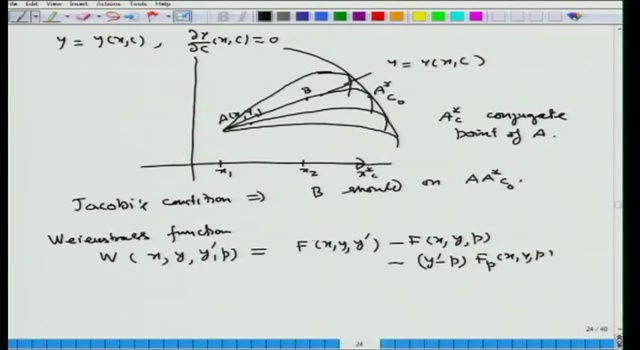 File Edit View Insert Actions Tools Help
y = y(x,c) , ∂y/∂c (x,c) = 0
y = y(x,c)
B
A*c₀
A(x₁,y₁)
A*c conjugate
point of A.
x₁ x₂ x*c
Jacobi's condition ⇒ B should on AA*c₀.
Weierstrass function
W ( x, y, y', p) = F(x,y,y') - F(x,y,p)
- (y'-p) Fp(x,y,p)
24 / 40
24